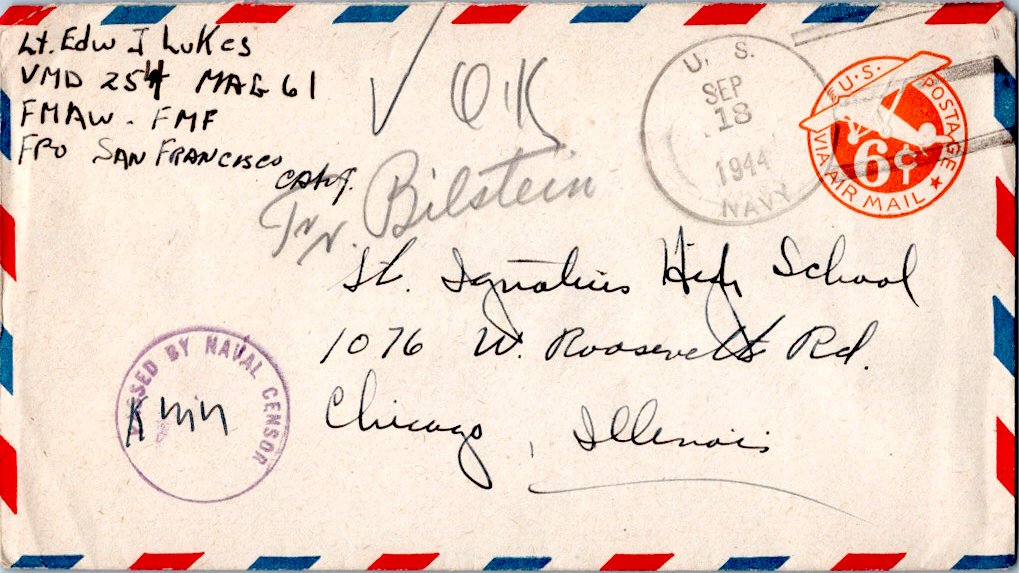 Lt. Edw J Lukes
VMD 254 MAG 61
FMAW - FMF
FPO SAN FRANCISCO
CALIF.
✓ OK
Fr. Bilstein
U. S.
SEP
18
1944
NAVY
U.S. POSTAGE
6¢
VIA AIR MAIL
St. Ignatius High School
1076 W. Roosevelt Rd.
Chicago, Illinois
PASSED BY NAVAL CENSOR